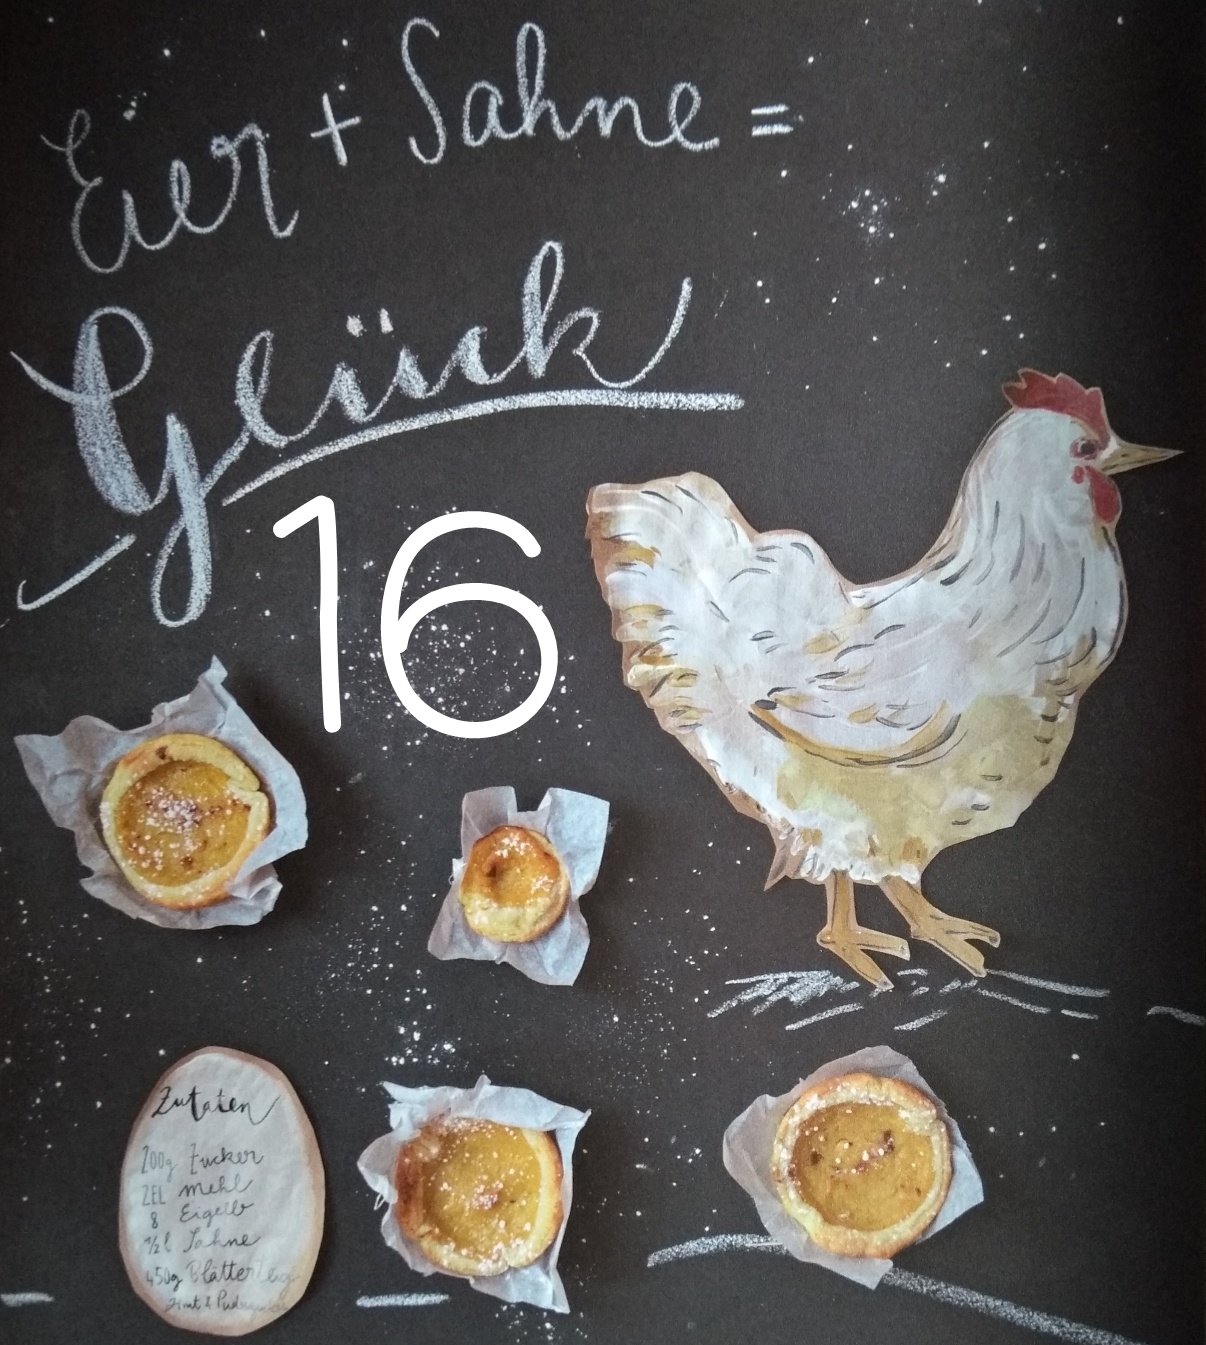 Eier + Sahne =
Glück
16
Zutaten
200g Zucker
2EL Mehl
8 Eigelb
½l Sahne
450g Blätterteig
Zimt & Puderzucker